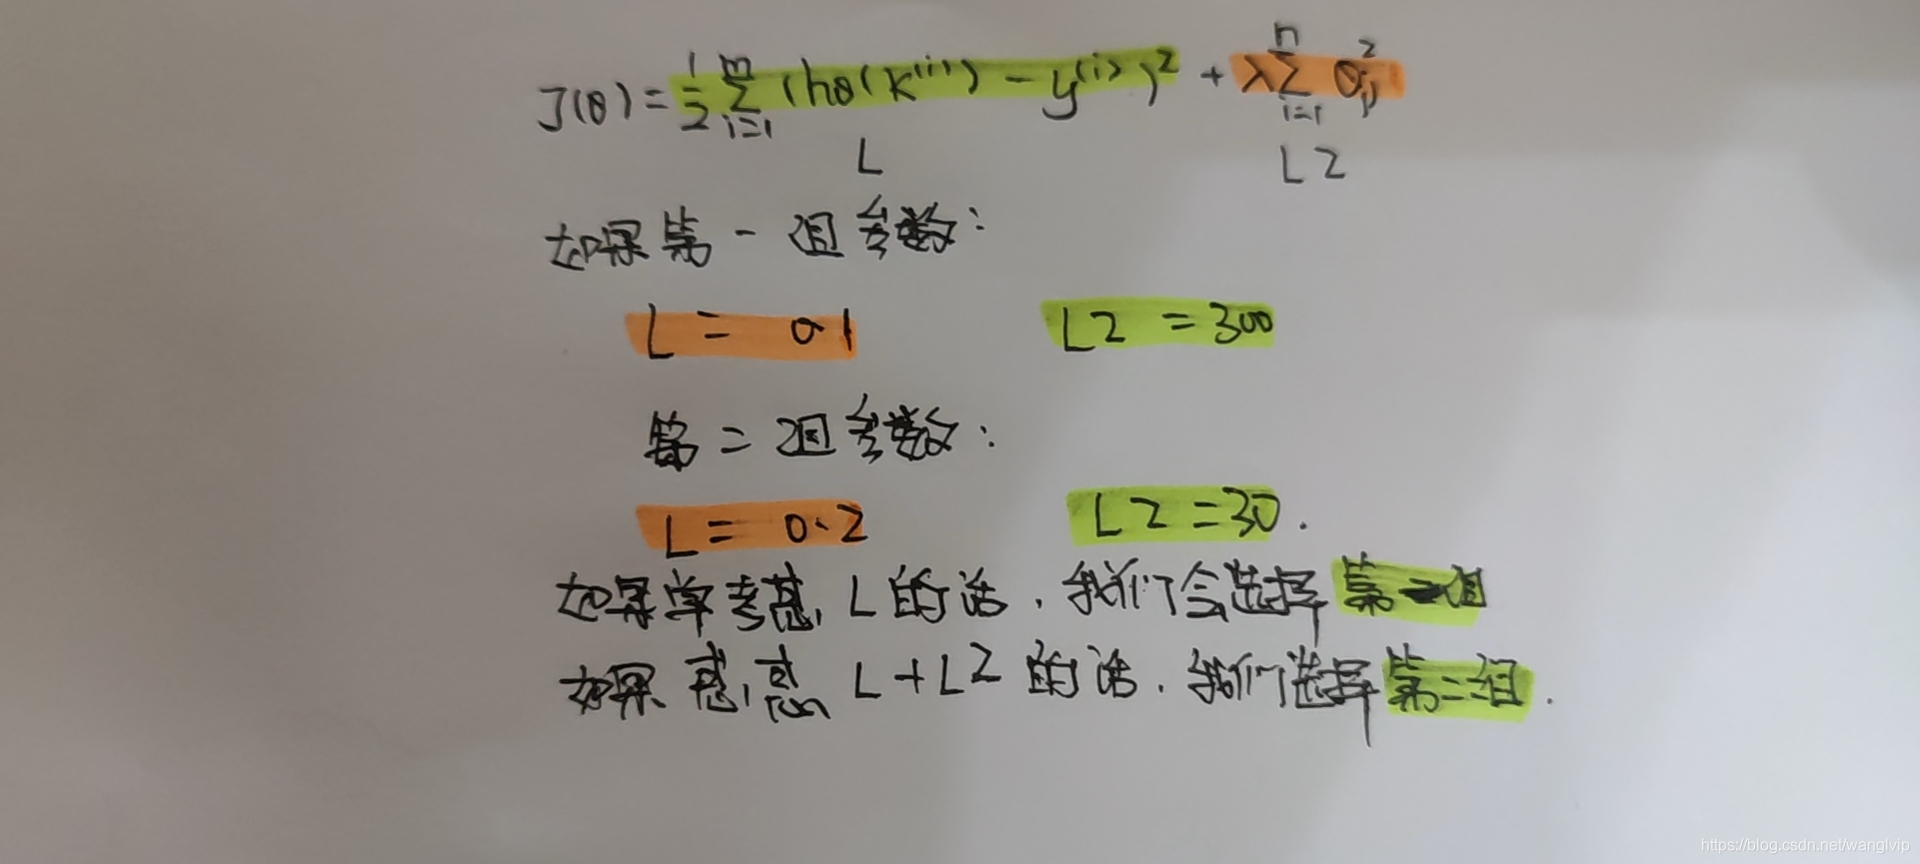 J(θ) = 1/2 Σ_{i=1}^{m} (hθ(x^{(i)}) - y^{(i)})² + λ Σ_{i=1}^{n} θ_j²
L L2
如果第一组参数:
L = 0.1 L2 = 300
第二组参数:
L = 0.2 L2 = 30.
如果单考虑 L 的话, 我们会选择第一组
如果 L + L2 的话, 我们选择第二组.
https://blog.csdn.net/wanglvip